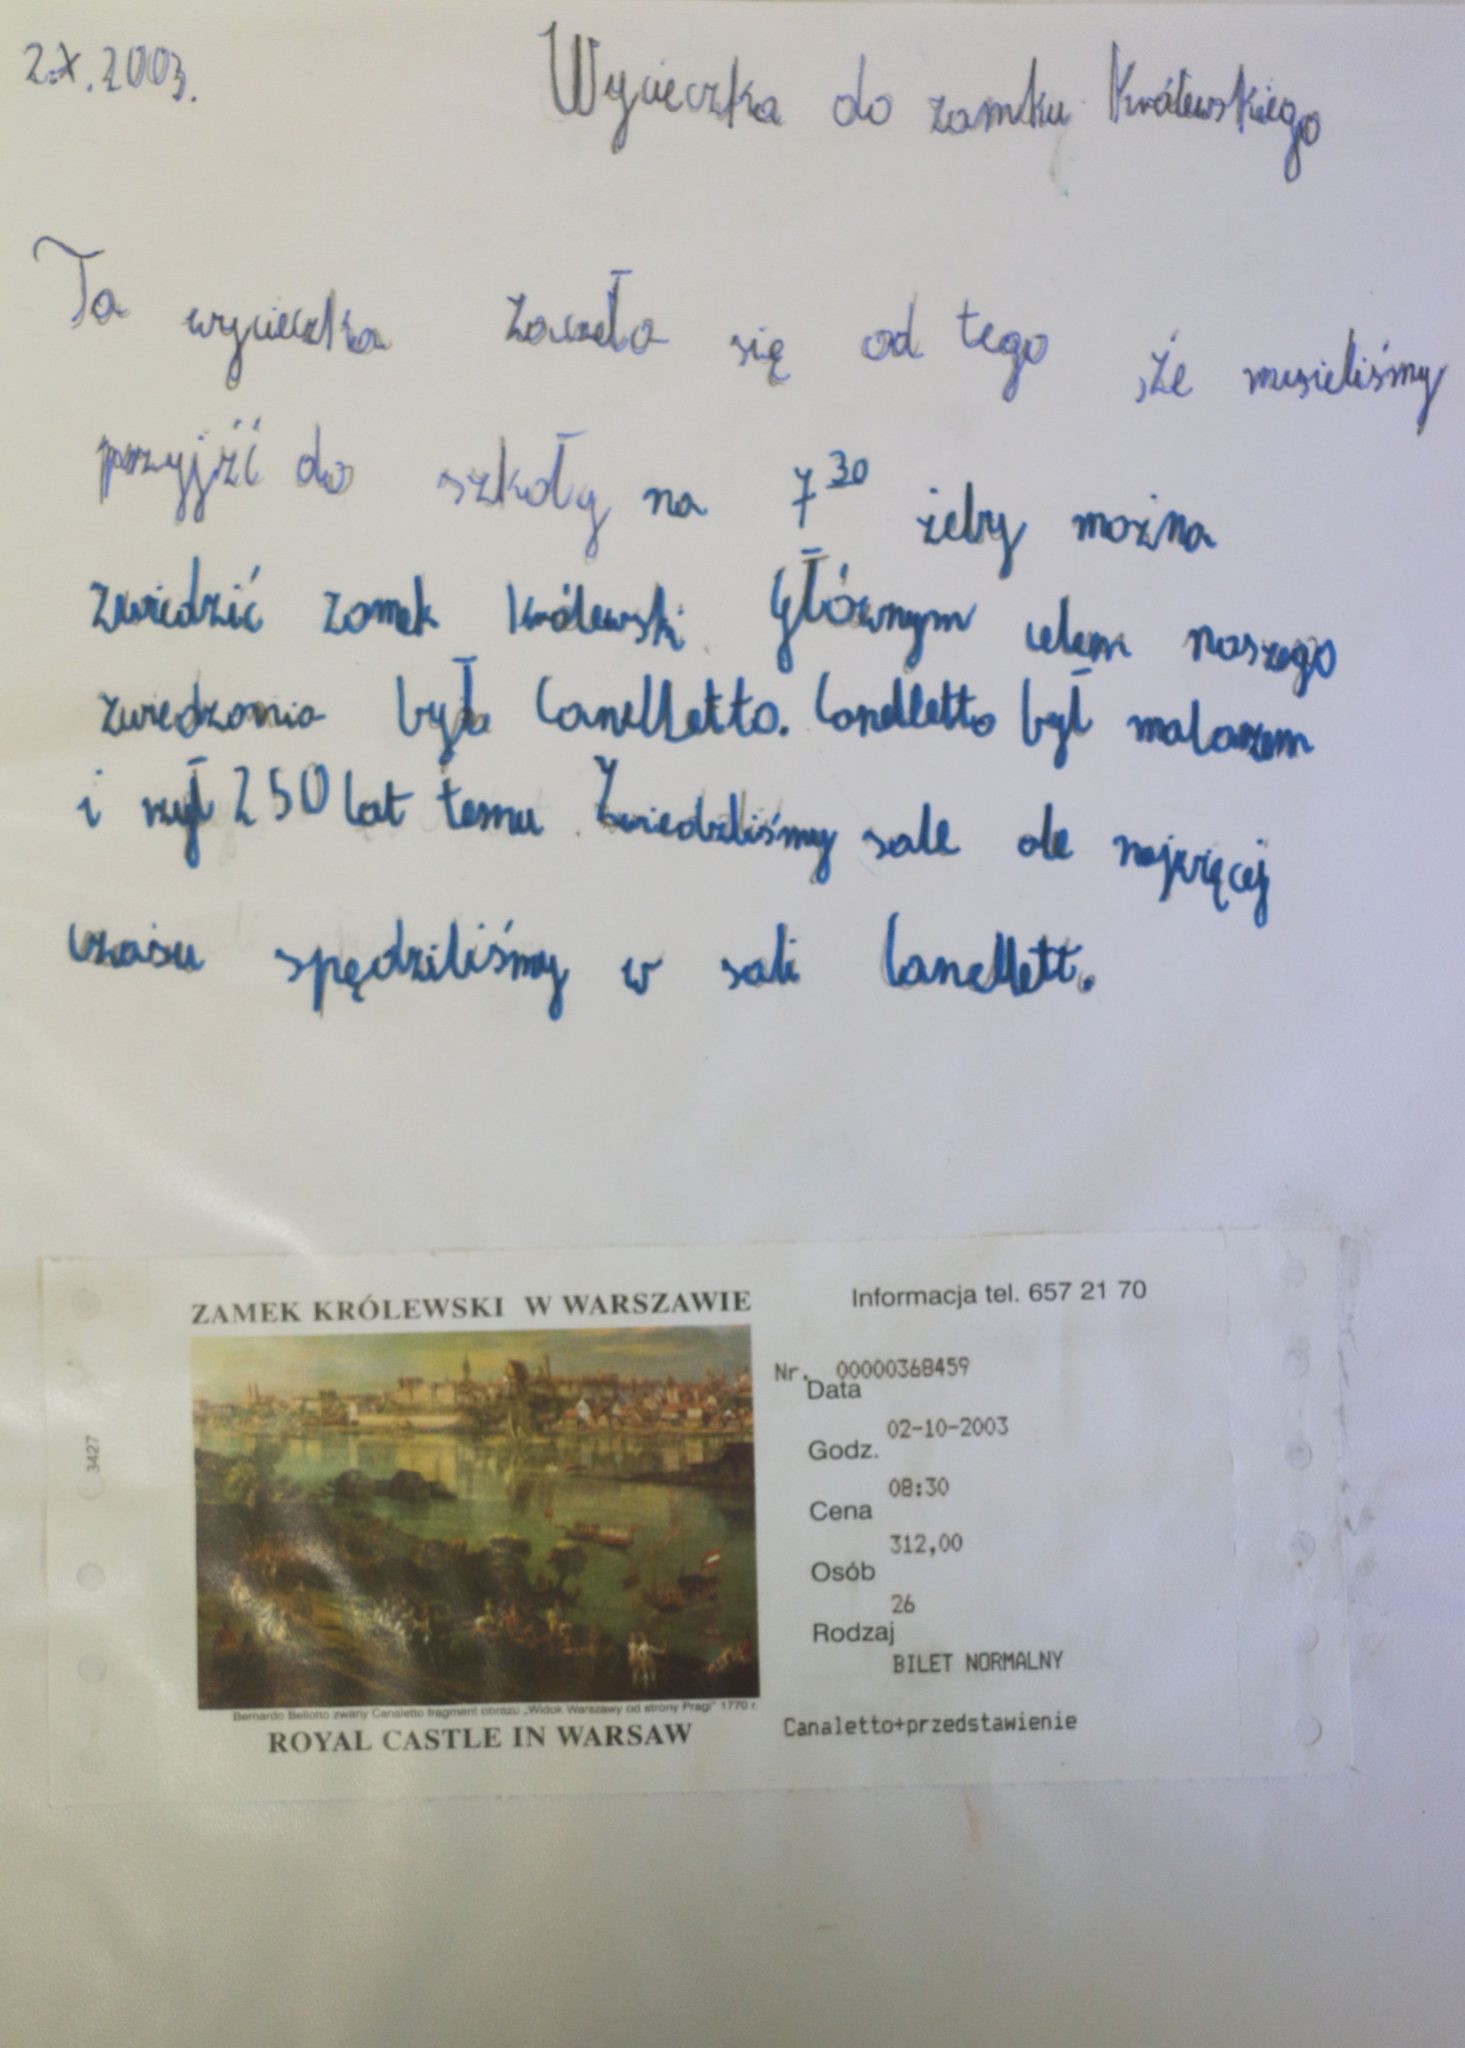 2.X.2003.
Wycieczka do zamku Królewskiego
Ta wycieczka zaczeła się od tego ,że musieliśmy
przyjźć do szkoły na 7³⁰ żeby można
zwiedzić zamek Królewski. Głównym celem naszego
zwiedzania był Canelletto. Canelletto był malarzem
i żył 250 lat temu. Zwiedziliśmy sale ale najwięcej
czasu spędziliśmy w sali Canellett.
ZAMEK KRÓLEWSKI W WARSZAWIE
Informacja tel. 657 21 70
Nr. 00000368459
Data
02-10-2003
Godz.
08:30
Cena
312,00
Osób
26
Rodzaj
BILET NORMALNY
Canaletto+przedstawienie
3427
Bernardo Bellotto zwany Canaletto fragment obrazu „Widok Warszawy od strony Pragi" 1770 r.
ROYAL CASTLE IN WARSAW